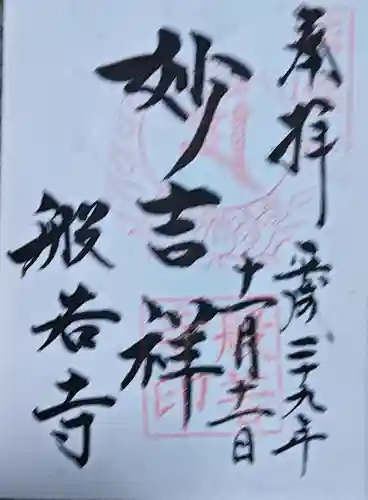 奉拝
平成二十九年
十一月十二日
妙吉祥
般若寺